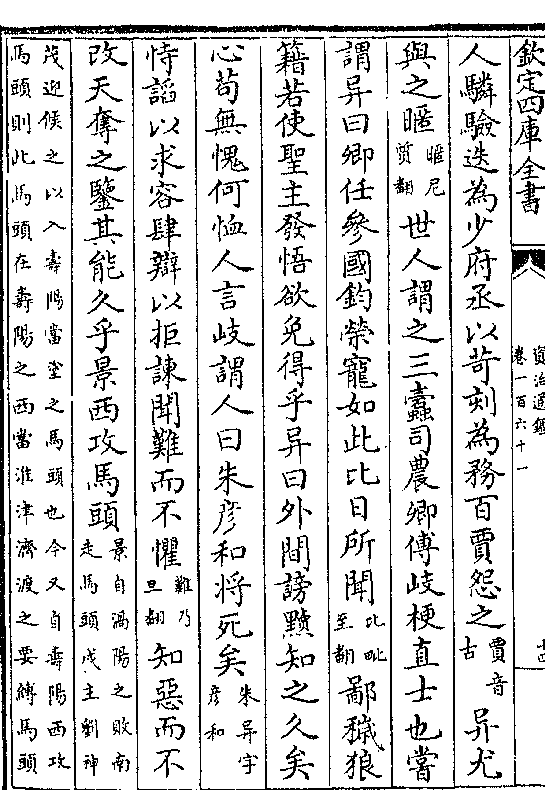 欽定四庫全書
資治通鑑
卷一百六十一
十四
人驎驗迭為少府丞以苛刻為務百賈怨之賈音古异尤
與之暱暱尼質翻世人謂之三蠹司農卿傅岐梗直士也嘗
謂异曰卿任參國鈞榮寵如此比日所聞比毗至翻鄙穢狼
籍若使聖主發悟欲免得乎异曰外間謗黷知之久矣
心苟無愧何恤人言岐謂人曰朱彦和将死矣朱异字彦和
恃諂以求容肆辯以拒諫聞難而不懼難乃旦翻知惡而不
改天奪之鑒其能久乎景西攻馬頭景自渦陽之敗南走馬頭戍主劉神
茂迎候之以入壽陽當塗之馬頭也今又自壽陽西攻
馬頭則此馬頭在壽陽之西當淮津濟渡之要縛馬頭